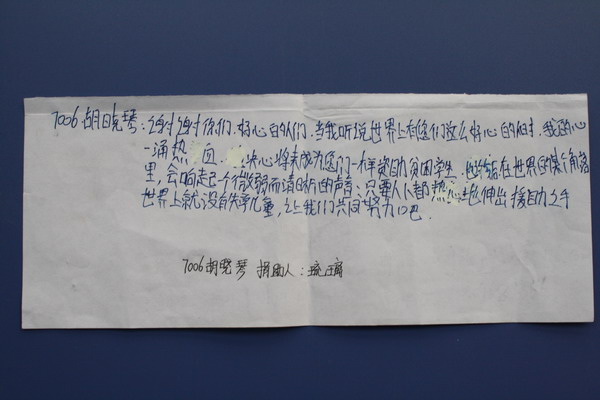 7006胡晓琴：谢谢你们．好心的人们．当我听说世界上有您们这么好心的人时，我的心
一涌热 决心将来成为您们一样资助贫困学生． 在世界的某个角落
里，会响起一个微弱而清晰的声音：只要人人都热心地伸出援助之手
世界上就没有失学儿童，让我们共同努力吧
7006胡晓琴 捐助人：琉璃